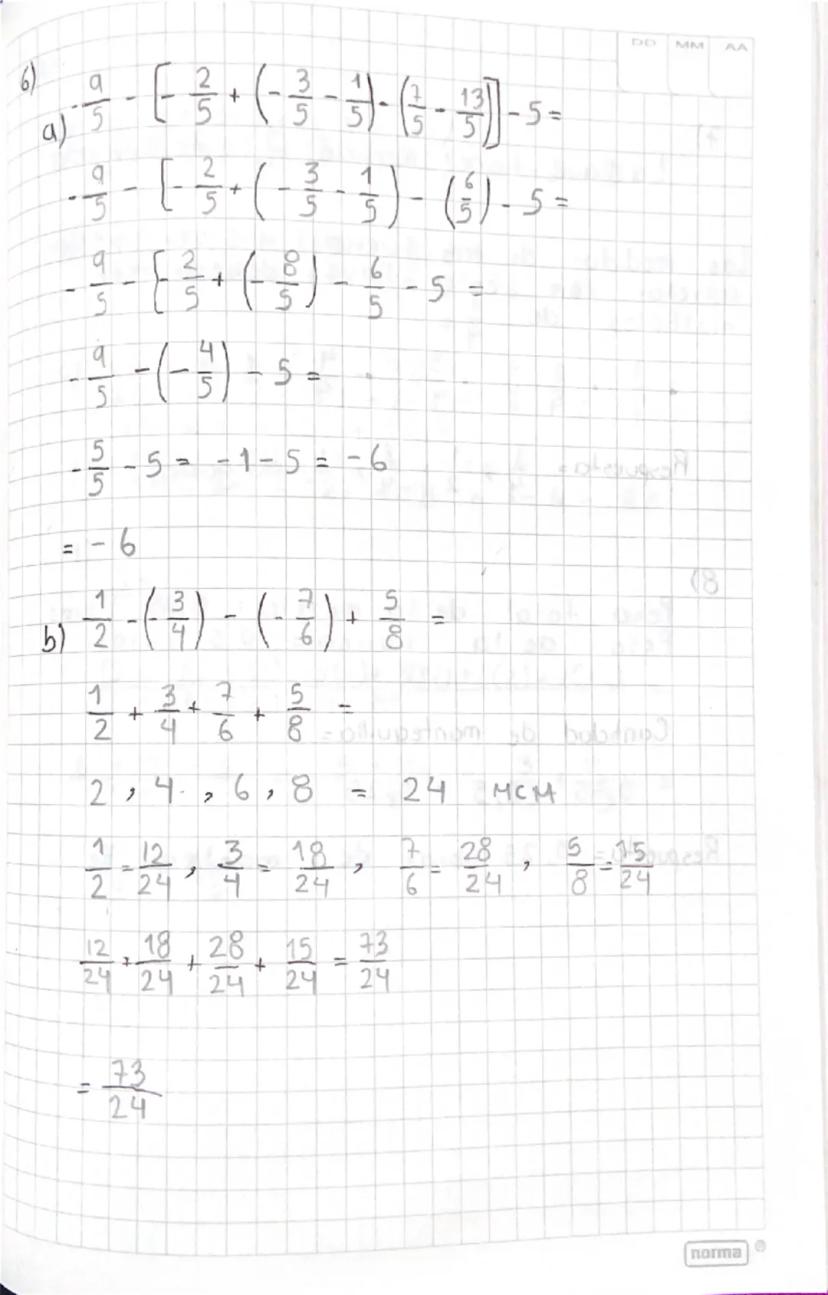 DD MM AA
6)
a) -9/5 - [-2/5 + (-3/5 - 1/5) - (7/5 - 13/5)] - 5 =
-9/5 - [-2/5 + (-3/5 - 1/5) - (6/5) - 5 =
-9/5 - [-2/5 + (-8/5) - 6/5 - 5 =
-9/5 - (-4/5) - 5 =
-5/5 - 5 = -1 - 5 = -6
= -6
b) 1/2 - (-3/4) - (-7/6) + 5/8 =
1/2 + 3/4 + 7/6 + 5/8 =
2 , 4 , 6 , 8 = 24 MCM
1/2 = 12/24 , 3/4 = 18/24 , 7/6 = 28/24 , 5/8 = 15/24
12/24 + 18/24 + 28/24 + 15/24 = 73/24
= 73/24
norma